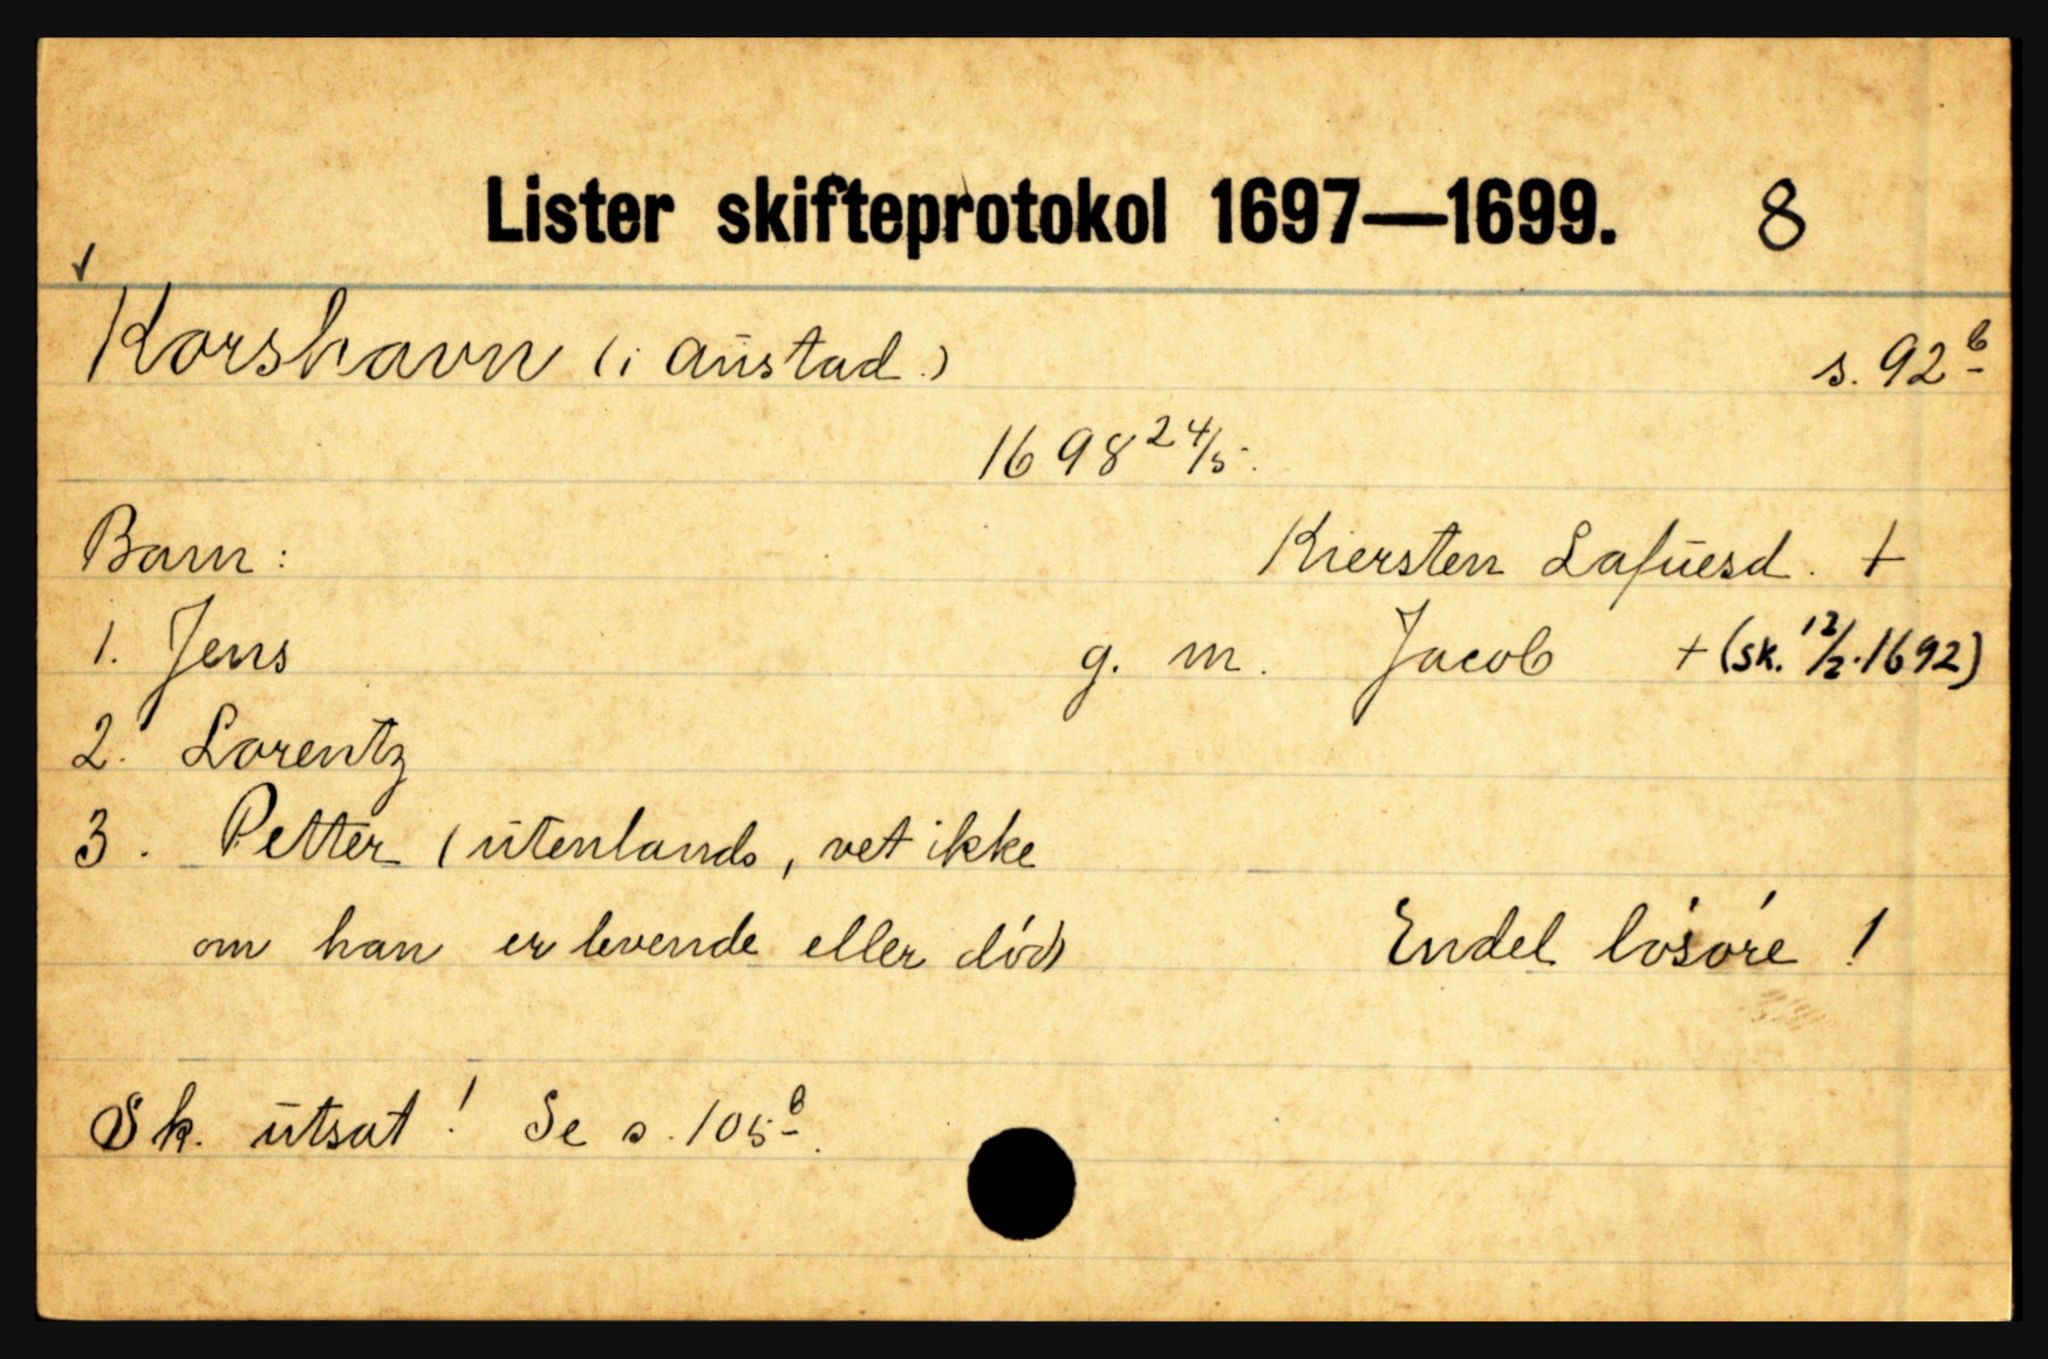 Lister skifteprotokol 1697—1699. 8
✓
Korshavn (i Austad.) s. 92 b
1698 24/5.
Barn: Kiersten Lafuesd. +
1. Jens g. m. Jacob + (sk. 12/2. 1692)
2. Lorentz
3. Petter (utenlands, vet ikke
om han er levende eller död) Endel lösöre !
Sk. utsat ! Se s. 105 b.